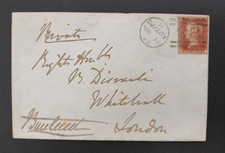 Private
Right Honble
B Disraeli
Whitehall
London